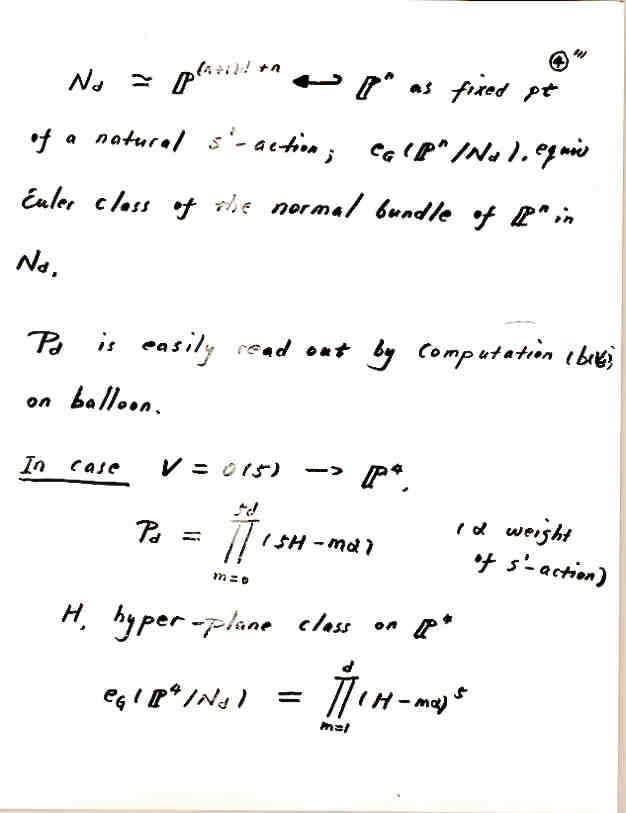 ④'''
N_d ≃ ℙ^{(n+1)d+n} ↩ ℙ^n as fixed pt
of a natural S¹-action; e_G(ℙ^n/N_d). equiv
Euler class of the normal bundle of ℙ^n in
N_d.
P_d is easily read out by computation
on balloon.
In case V = O(5) → ℙ⁴,
P_d = ∏_{m=0}^{5d} (5H - mα) (α weight
of S¹-action)
H, hyper-plane class on ℙ⁴
e_G(ℙ⁴/N_d) = ∏_{m=1}^{d} (H - mα)⁵